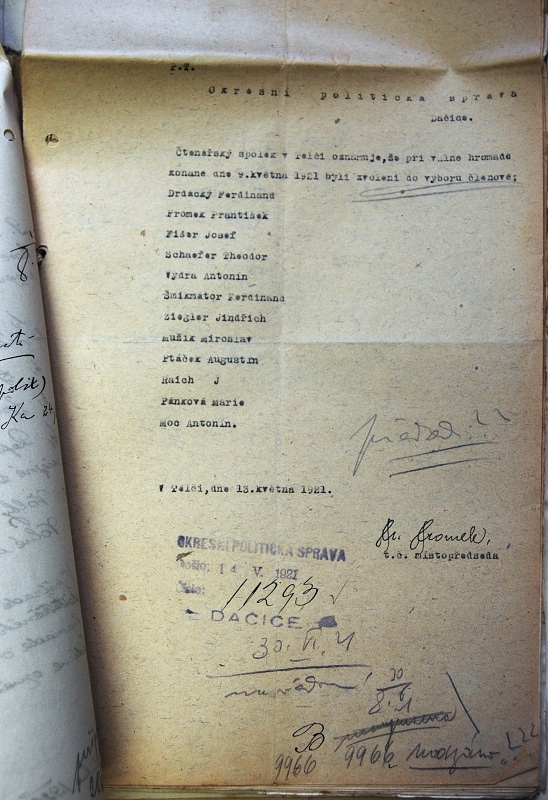 P.T.
Okresní politická správa
Dačice.
Čtenářský spolek v Telči oznamuje,že při valné hromadě
konané dne 9.května 1921 byli zvoleni do výboru členové;
Drdacký Ferdinand
Fromek František
Fišer Josef
Schaefer Theodor
Vydra Antonín
Šmikmátor Ferdinand
Ziegler Jindřich
Mužík Miroslav
Ptáček Augustin
Raich J
Pánková Marie
Moc Antonín.
V Telči,dne 13.května 1921.
Fr. Fromek,
t.č. místopředseda
OKRESNÍ POLITICKÁ SPRÁVA
Došlo: 14 V. 1921
Číslo: 11293
DAČICE
30. VI. 21
30
8. 6
B
9966 9966